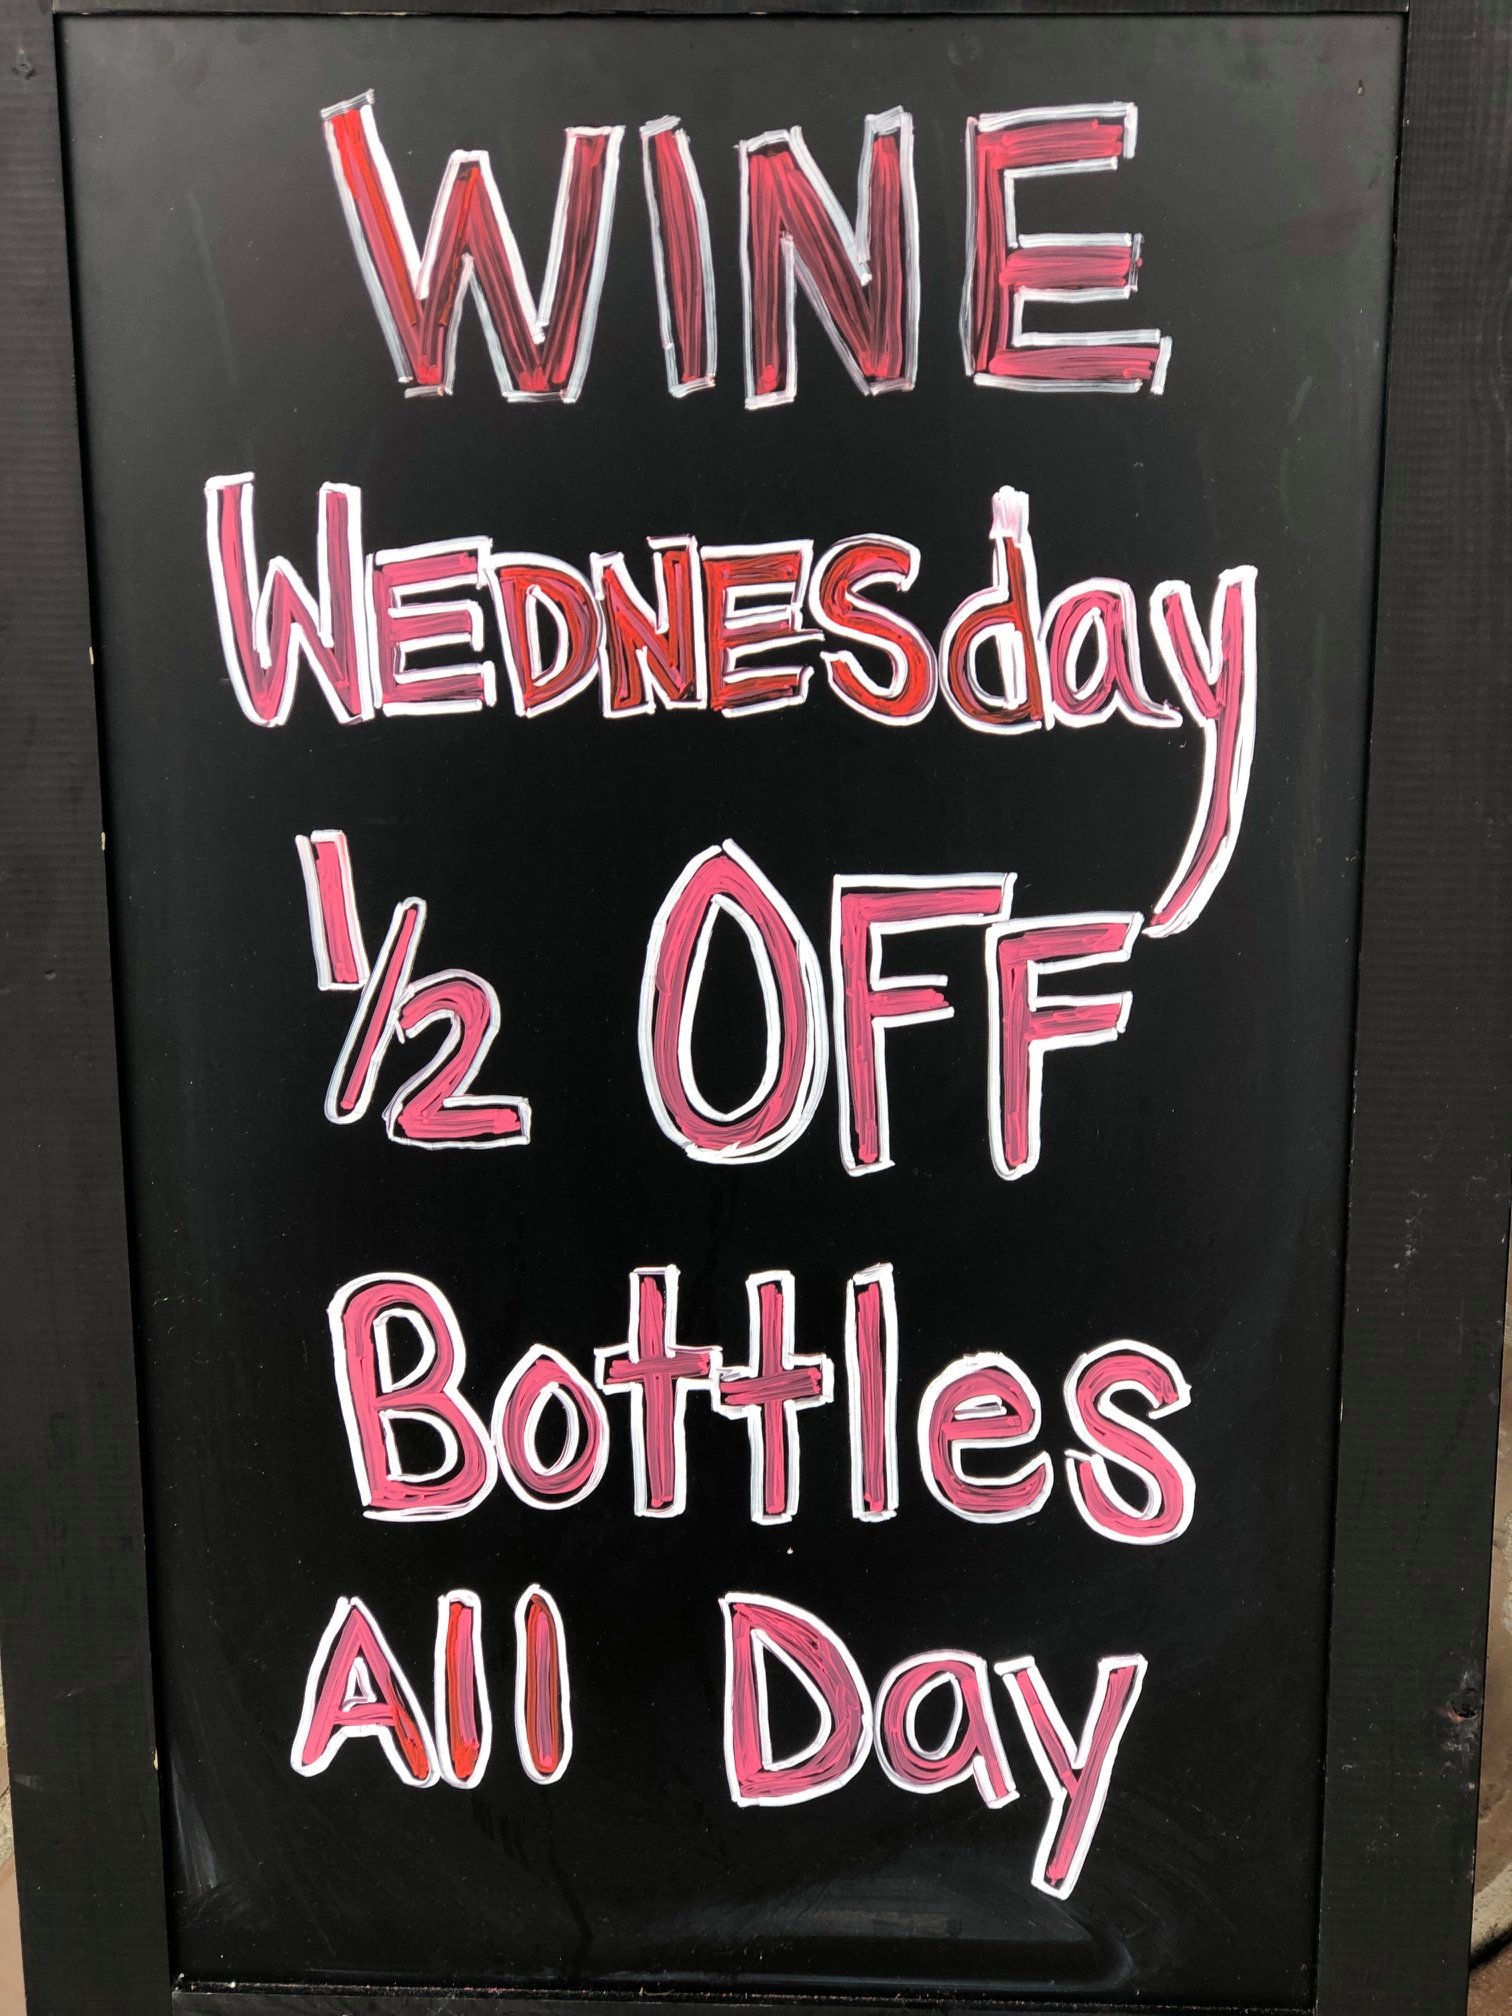 WINE
WEDNESday
1/2 OFF
Bottles
All Day